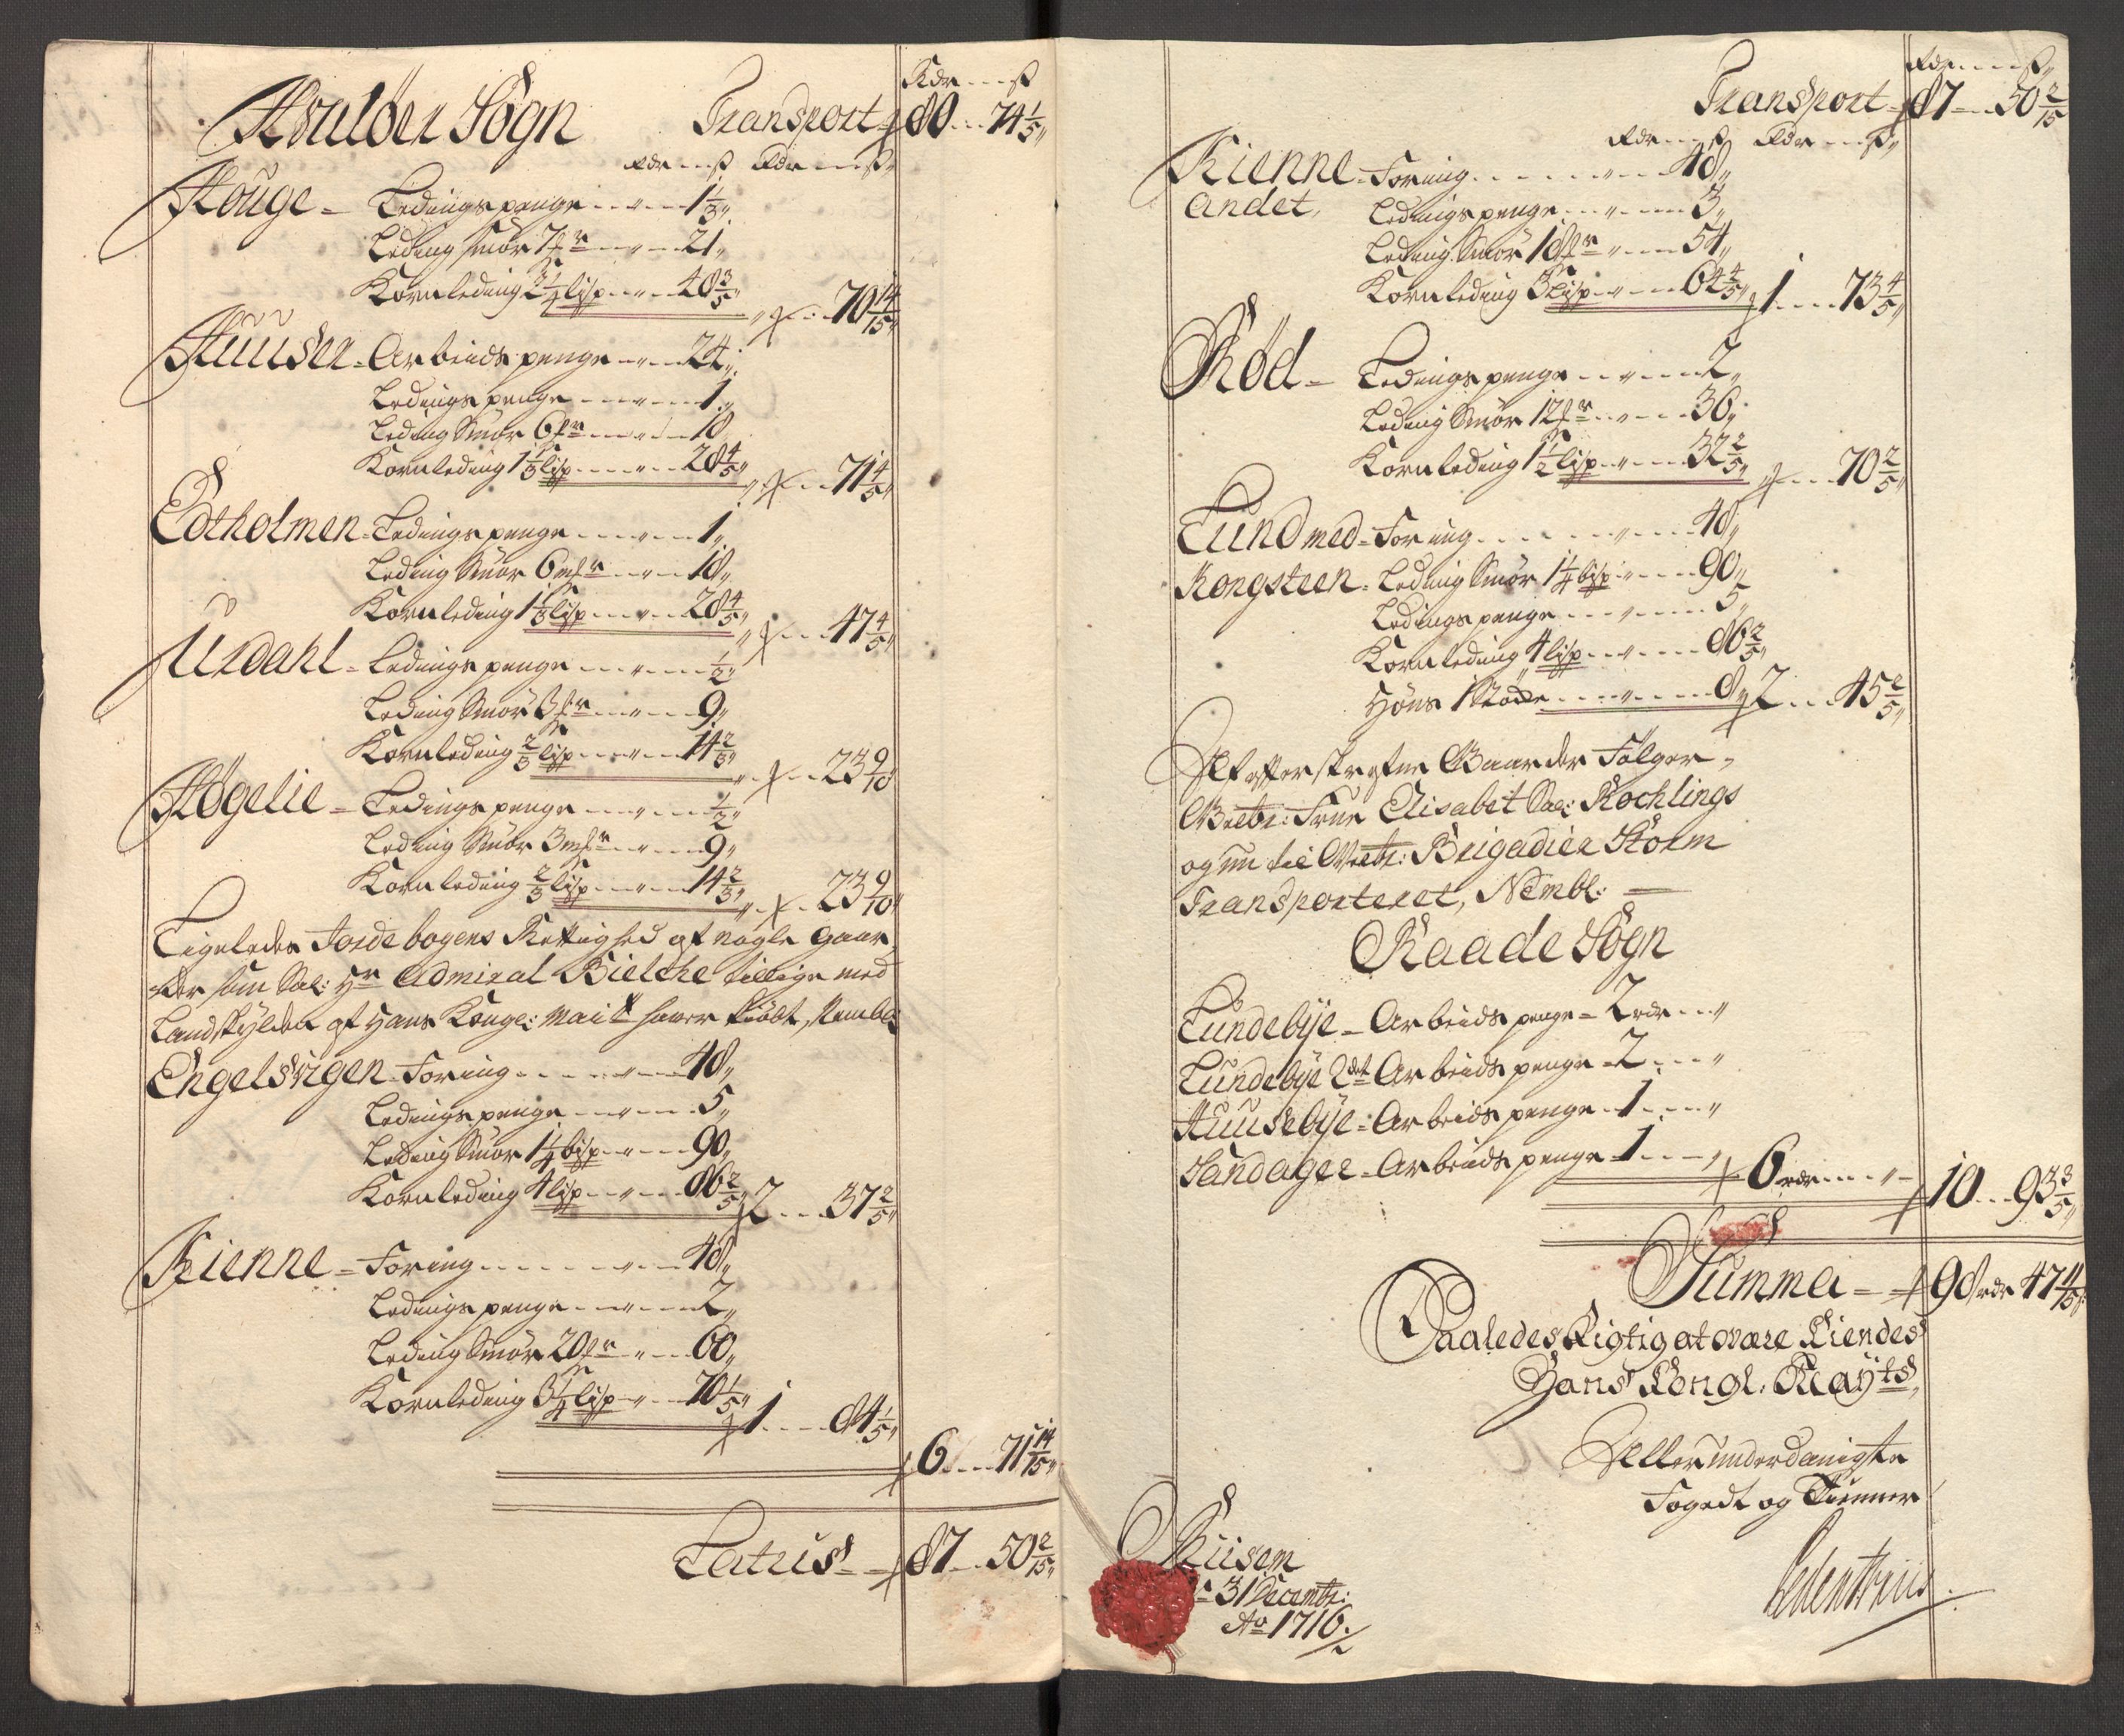 Rdr ß
Hvalöer Sogn Transport - 80 . . 74 1/5
Rdr ß Rdr ß
Houge - Ledings penge 1 1/3
Leding Smör 7 21
Kornleding 2 1/4 lisp 48 3/5 - 70 14/15
Huuser - Arbeids penge 24
Ledings penge 1
Leding Smör 6 18
Kornleding 1 1/3 lisp 28 4/5 - 71 4/5
Edtholmen - Ledings penge 1
Leding Smör 6 18
Kornleding 1 1/3 lisp 28 4/5 - 47 4/5
Urdahl - Ledings penge 1/2
Leding Smör 3 9
Kornleding 2/3 lisp 14 2/3 - 23 9/10
Høgelie - Ledings penge 1/2
Leding Smör 3 9
Kornleding 2/3 lisp 14 2/3 - 23 9/10
Ligeledes Jordebogens Rettighed af nogle gaar-
der som Sal: Hr Admiral Bielche tillige med
Landskylden af Hans Konge: Mait haver kiöbt, Nembl:
Engelsvigen - Foring 48
Ledings penge 5
Leding Smör 1 1/4 bisp 90
Kornleding 4 lisp 86 2/5 2 . . 37 2/5
Kienne - Foring 48
Ledings penge 2
Leding Smör 20 60
Kornleding 3 1/4 lisp 70 1/5 1 . . 84 1/5
6 . . 71 14/15
Latus - 87 . . 50 2/15
Rdr ß
Transport - 87 . . 50 2/15
Rdr ß Rdr ß
Kienne - Foring 48
andet, Ledings penge 3
Leding Smör 18 54
Kornleding 3 lisp 64 4/5 1 . . 73 4/5
Röd - Ledings penge 2
Leding Smör 12 36
Kornleding 1 1/2 lisp 32 2/5 - 70 2/5
Lund med - Foring 48
Kongsteen - Leding Smör 1 1/4 bisp 90
Ledings penge 5
Kornleding 4 lisp 86 2/5
Höns 1 Stode 8 2 . . 45 2/5
Af efterskrefne Gaarder Følger
Welbr: Frue Elisabet Sal: Kochlings
og nu til Welbr: Brigadier Storm
Transporteret, Nembl:
Raade Sogn
Lundebÿe - Arbeids penge - 2 rdr
Lundebÿe 2det Arbeids penge - 2
Huusebÿe - Arbeids penge - 1
Sandager - Arbeids penge - 1 - 6 rdr - 10 . . 93 3/5
Summa - 98 rdr 47 11/15
Saaledes Rigtig at være Kiendes
Hans Kongl: Mayts
Allerunderdanigste
Fogedt og Tienner
Riisem
31 Decembr:
Ao 1716